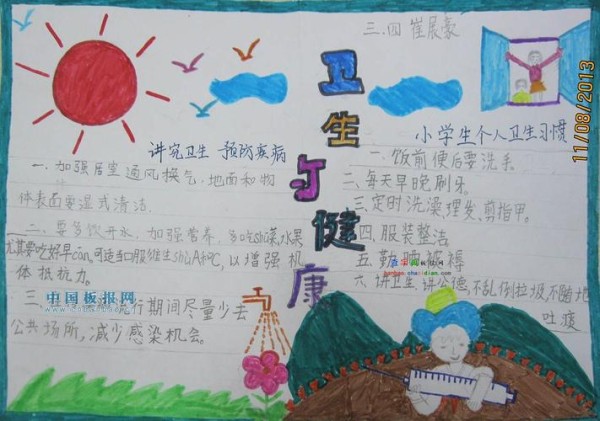 三.四 崔展豪
11/08/2013
卫生与健康
讲究卫生 预防疾病
一.加强居室通风换气,地面和物
体表面要湿式清洁.
二.要多饮开水,加强营养,多吃shū菜,水果
尤其要吃好早cān,可适当口服维生shùA和C,以增强机
体抵抗力。
三.行期间尽量少去
公共场所,减少感染机会。
中国板报网
小学生个人卫生习惯
一.饭前便后要洗手.
二.每天早晚刷牙。
三.定时洗澡,理发、剪指甲。
四.服装整洁
五.勤晒被褥
六.讲卫生讲公德,不乱倒垃圾,不随地
吐痰